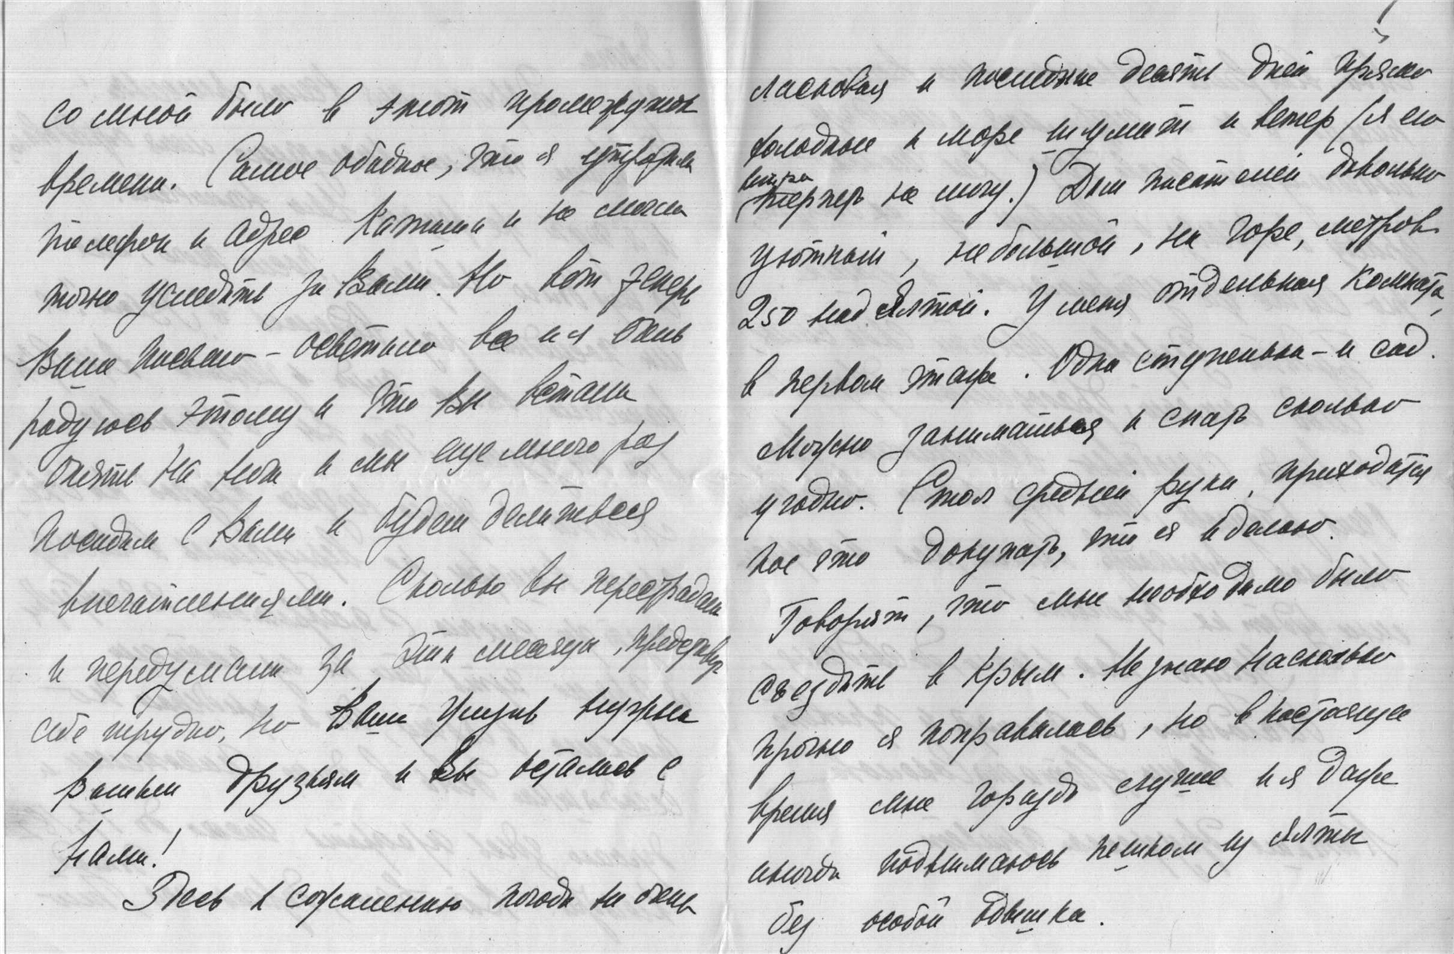 со мной было в этот промежуток
времени. Самое обидное, что я утратила
телефон и адрес Катыши и не могла
точно уследить за Вами. Но вот теперь
Ваше письмо – осветило все и я так
радуюсь этому и что Вы встали
опять на ноги и мы еще много раз
посидим с Вами и будем делиться
впечатлениями. Сколько Вы перестрадали
и передумали за эти месяцы, представить
себе трудно, но Ваша жизнь нужна
Вашим друзьям и Вы остались с
нами!
Здесь к сожалению погода не очень
ласковая и последние десять дней прямо
холодные и море шумит и ветер (я его
ветра
терпеть не могу.) Дом писателей довольно
уютный, небольшой, на горе, метров
250 над Ялтой. У меня отдельная комната,
в первом этаже. Одна ступенька – и сад.
Можно заниматься и спать сколько
угодно. Стол средней руки, приходится
кое что докупать, что я и делаю.
Говорят, что мне необходимо было
съездить в Крым. Не знаю насколько
прочно я поправилась, но в настоящее
время мне гораздо лучше и я даже
иногда поднимаюсь пешком из Ялты
без особой одышки.